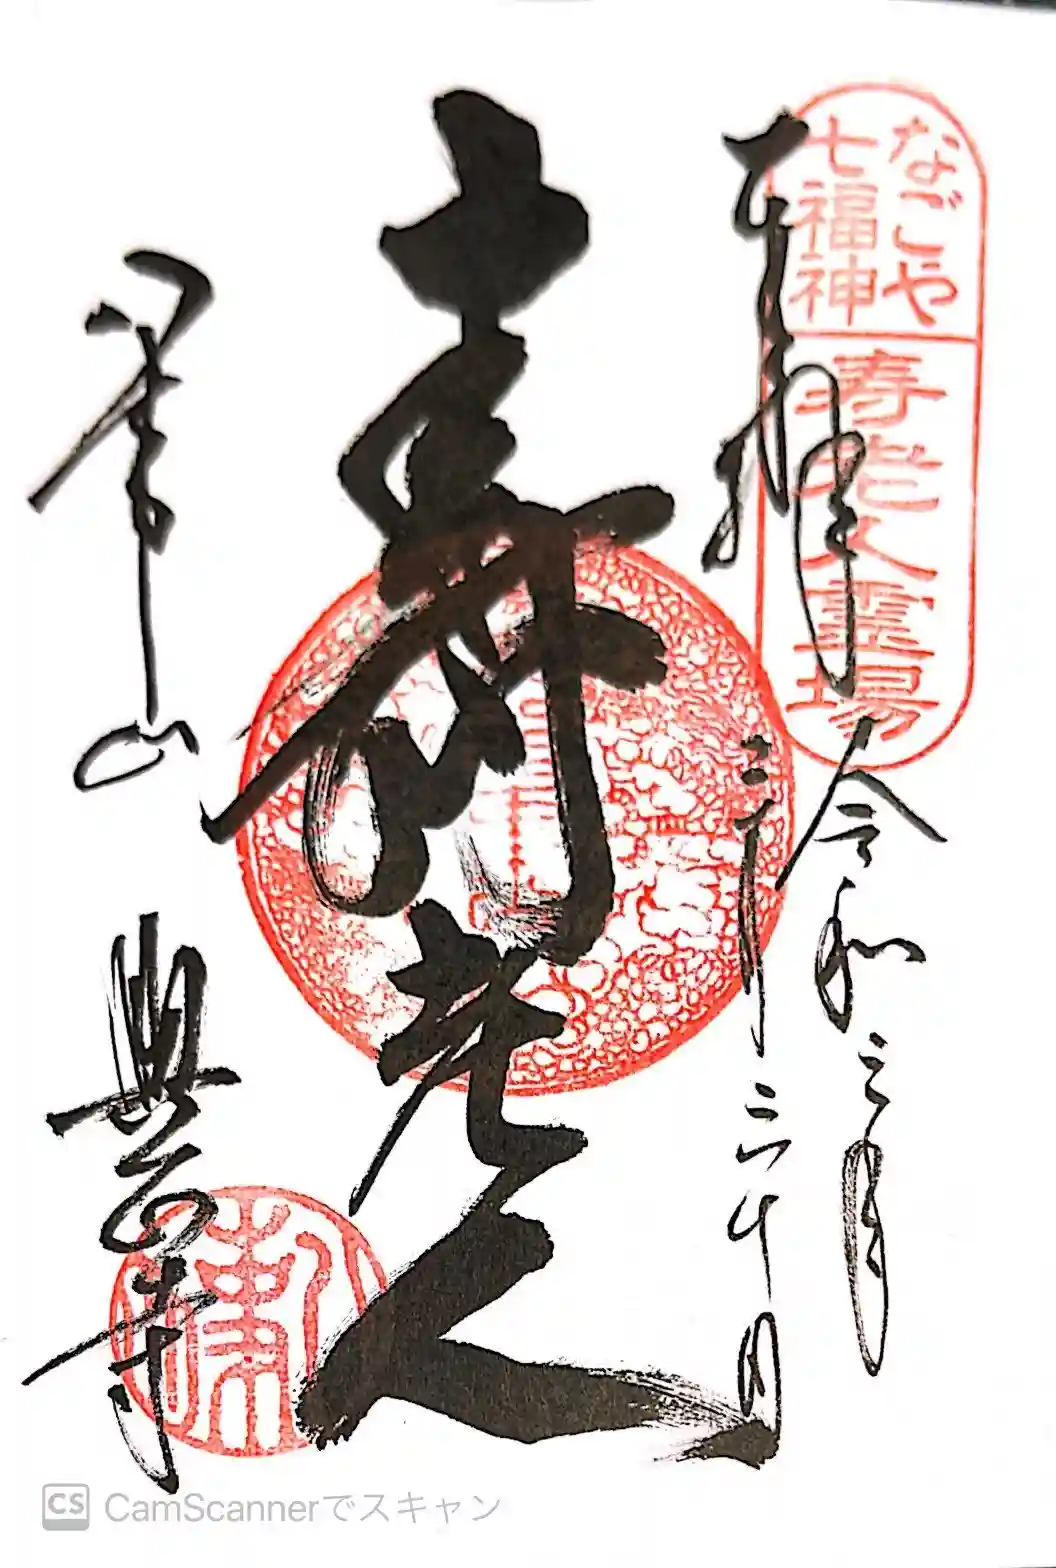 なごや
七福神
寿老人霊場
奉拝
令和三
寿老人
八事山
興正寺
CS CamScannerでスキャン